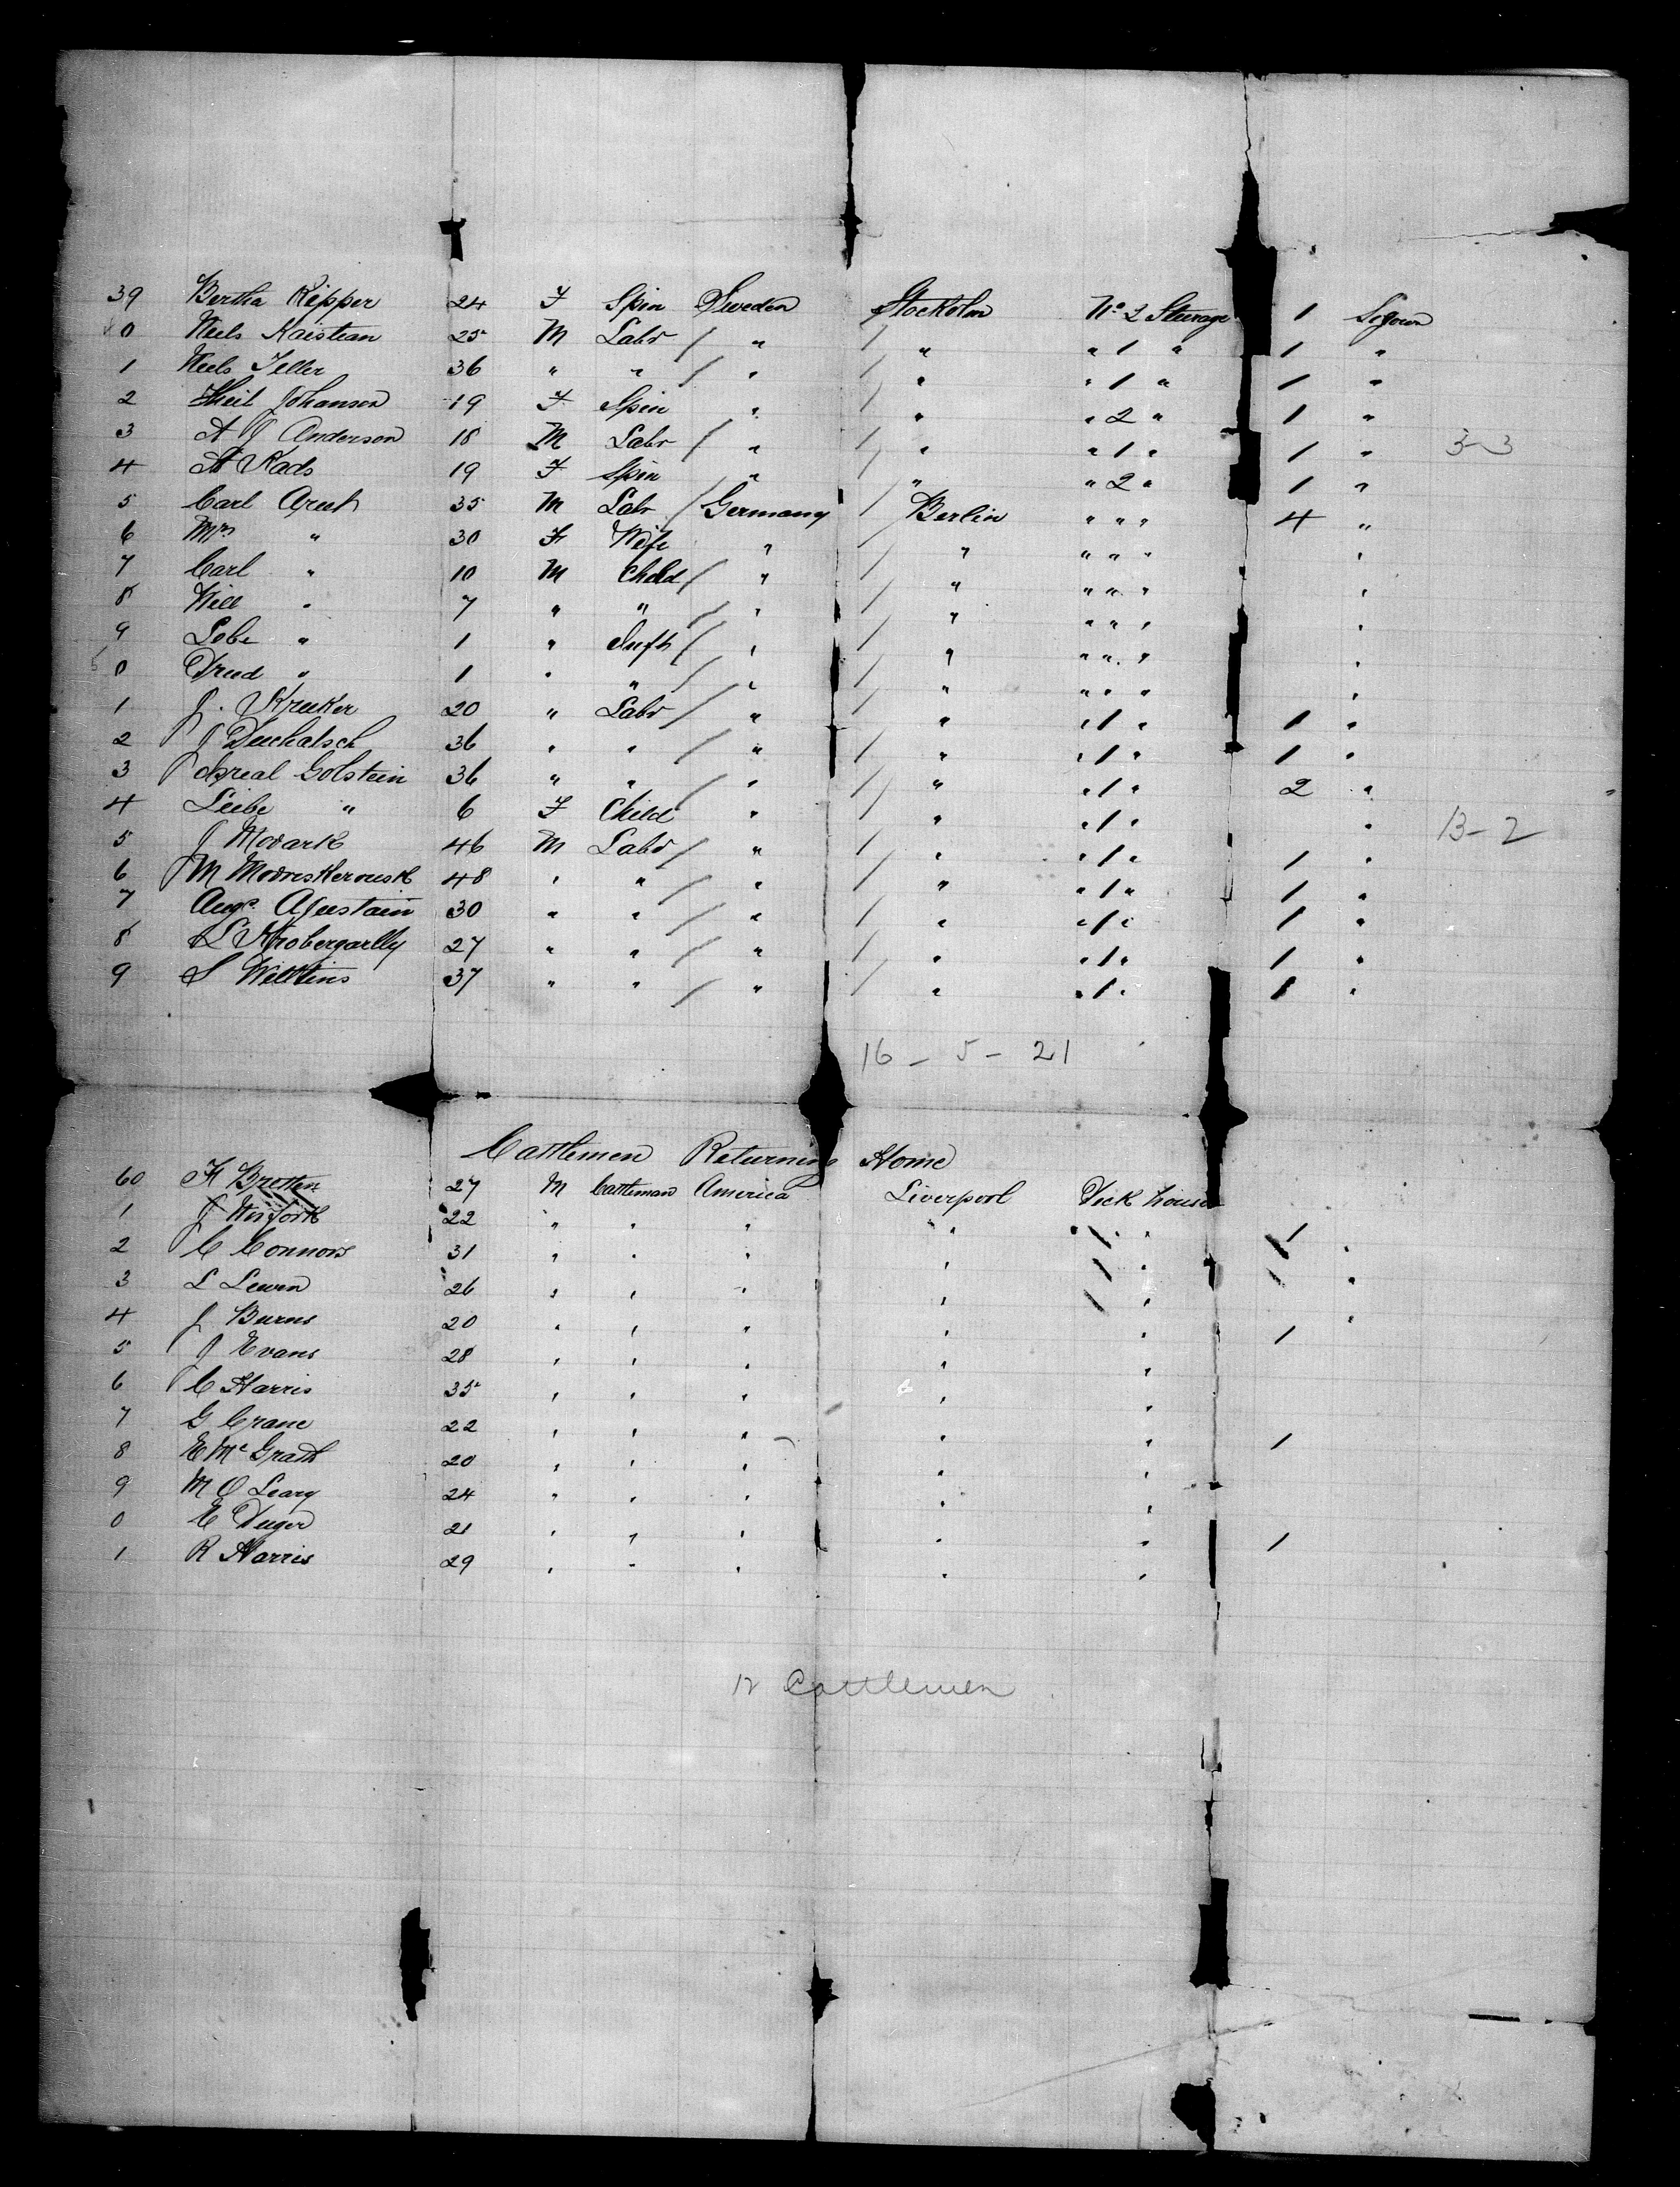 39 Bertha Kipper 24 F Spin Sweden Stockolm No 2 Steerage 1 Sojourn
40 Neels Kaistian 25 M Labr / " / " " 1 " 1 "
1 Neels Teller 36 " " / " / " " 1 " 1 "
2 Theil Johanson 19 F Spin " / " " 2 " 1 "
3 A J Anderson 18 M Labr / " / " " 1 " 1 " 3-3
4 A Rads 19 F Spin " / " " 2 " 1 "
5 Carl 35 M Labr / Germany / Berlin " " " 4 "
6 Mrs " 30 F Wife " / " " " " "
7 Carl " 10 M Child / " / " " " " "
8 Will " 7 " " / " / " " " " "
9 Lobe " 1 " Inft / " / " " " " "
50 Trud " 1 " " / " / " " " " "
1 J. Kreeker 20 " Labr / " " " 1 " 1 "
2 J Duchatsch 36 " " / " / " " 1 " 1 "
3 Isreal Golstein 36 " " / " / " " 1 " 2 "
4 Liebe " 6 F Child " / " " 1 " " 13-2
5 J Novark 46 M Labr / " / " " 1 " 1 "
6 M 48 " " / " / " " 1 " 1 "
7 Augs. 30 " " / " / " " 1 " 1 "
8 L 27 " " / " / " " 1 " 1 "
9 S Willtins 37 " " / " / " " 1 " 1 "
16 - 5 - 21
Cattlemen Returning Home
60 H Brotten 27 M Cattleman America Liverpool Deck house
1 J 22 " " " " " 1
2 C Connors 31 " " " " " "
3 L Lewin 26 " " " " " "
4 J Burns 20 " " " " " 1 "
5 J Evans 28 " " " " "
6 C Harris 35 " " " " "
7 G Crane 22 " " " " " 1
8 E Mc Grath 20 " " " " "
9 M O Leary 24 " " " " "
0 E Duger 21 " " " " " 1
1 R Harris 29 " " " " "
12 Cattlemen